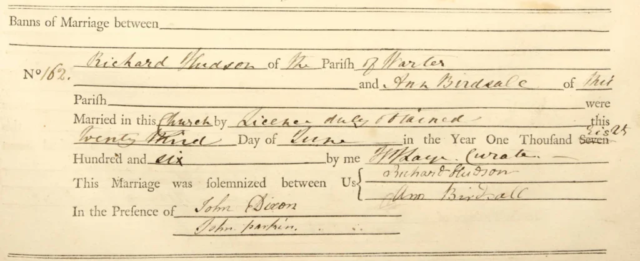 Banns of Marriage between
No 162. Richard Hudson of the Parish of Warter
and Ann Birdsall of this
Parish were
Married in this Church by Licence duly obtained this
Twenty third Day of June in the Year One Thousand Seven Eight
Hundred and six by me Curate
This Marriage was solemnized between Us { Richard Hudson
Ann Birdsall
In the Presence of John Dixon
John Parkin